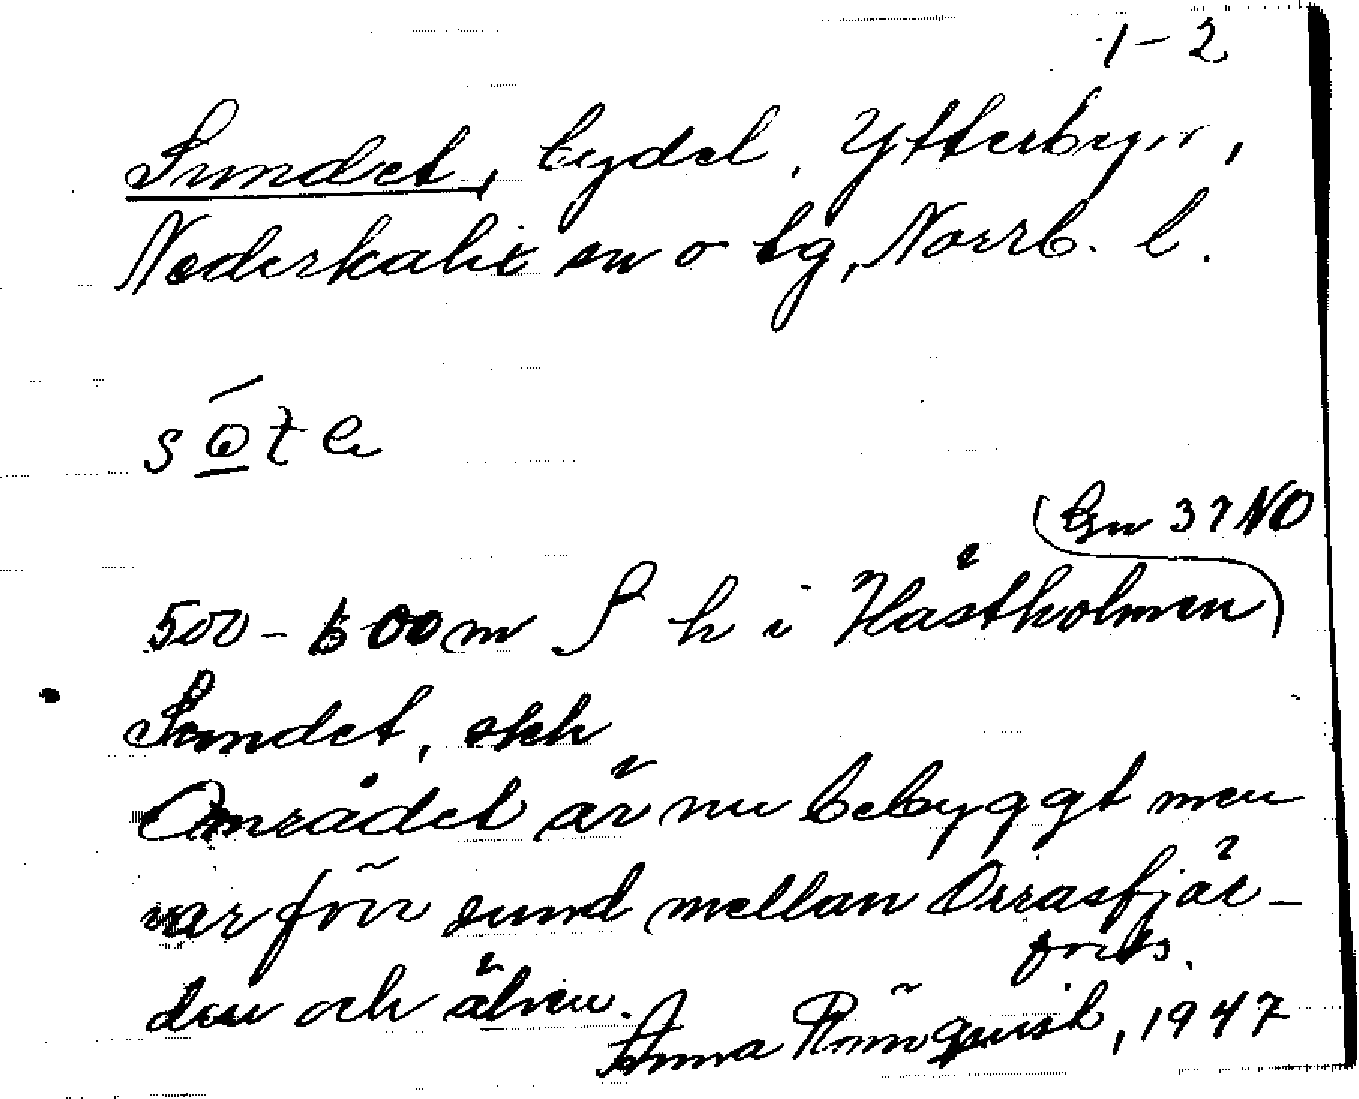 1-2
Sundet, bydel, Ytterbyn,
Nederkalix sn o tg, Norrb. l.
söte
(Gn 37 NO
500-600 m S h i Hästholmen)
Sundet, skh
Området är nu bebyggt men
var förr sund mellan Orrasfjär-
den och älven.
forts.
Anna Rönnquist, 1947